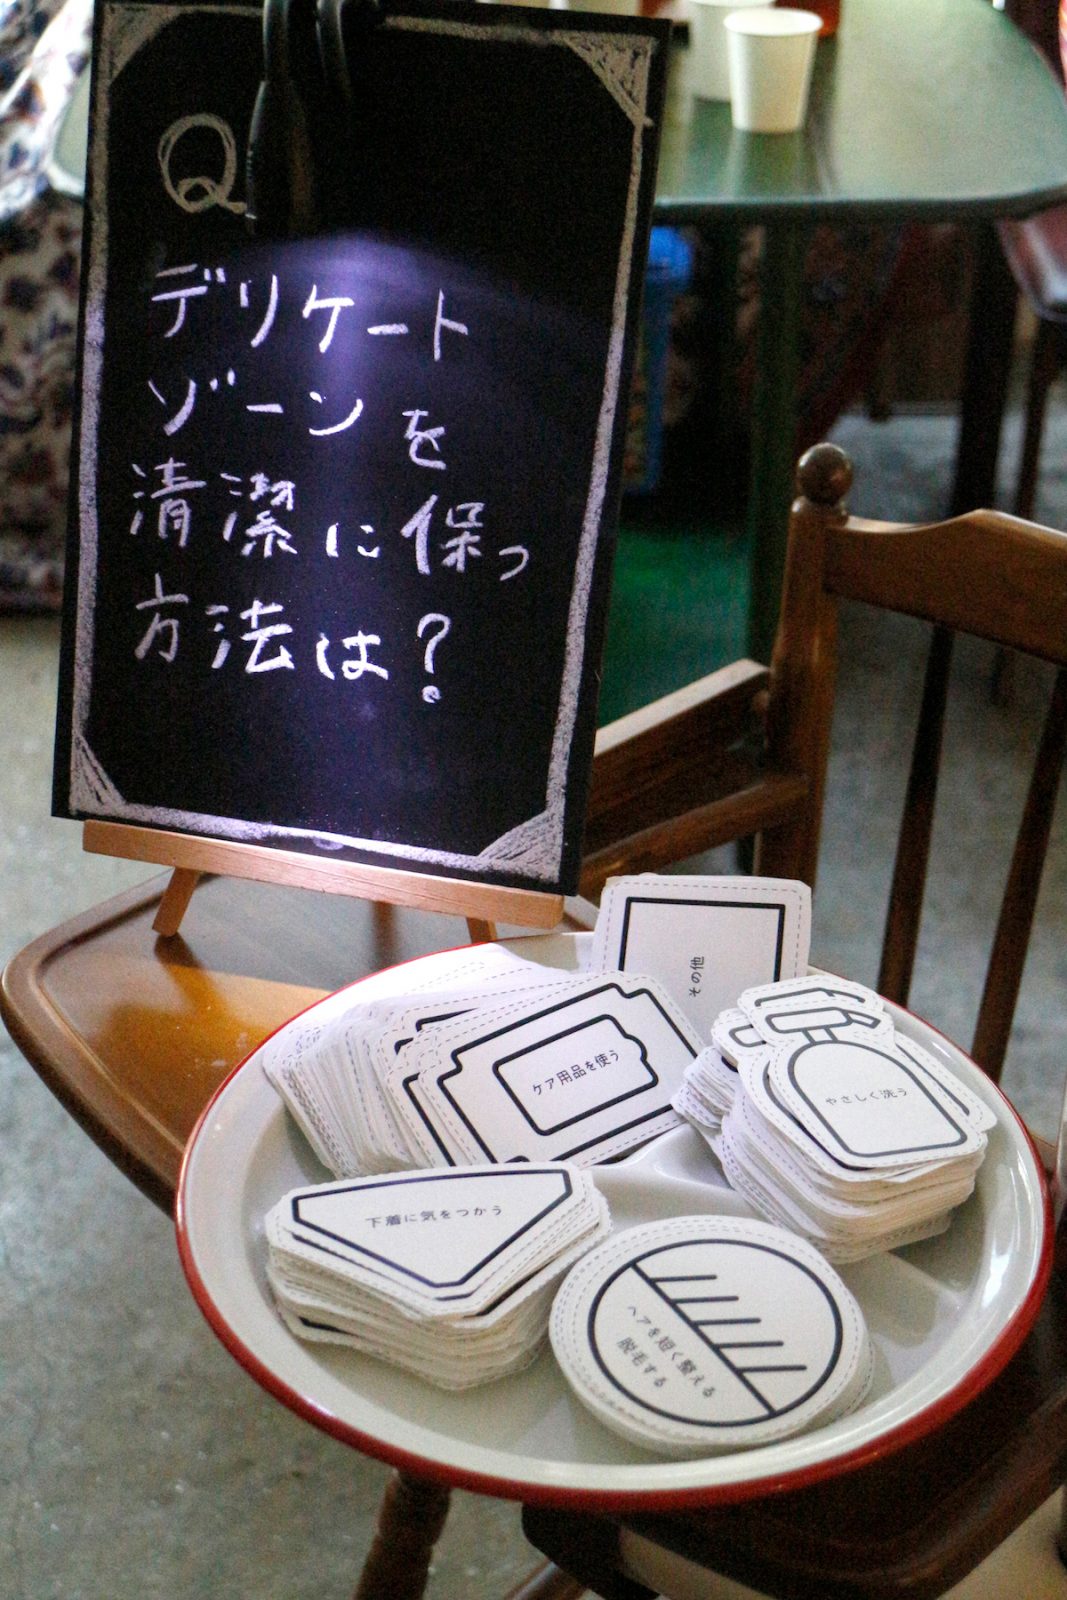 Q
デリケート
ゾーンを
清潔に保つ
方法は?
その他
ケア用品を使う
やさしく洗う
下着に気をつかう
ヘアを短く整える
脱毛する